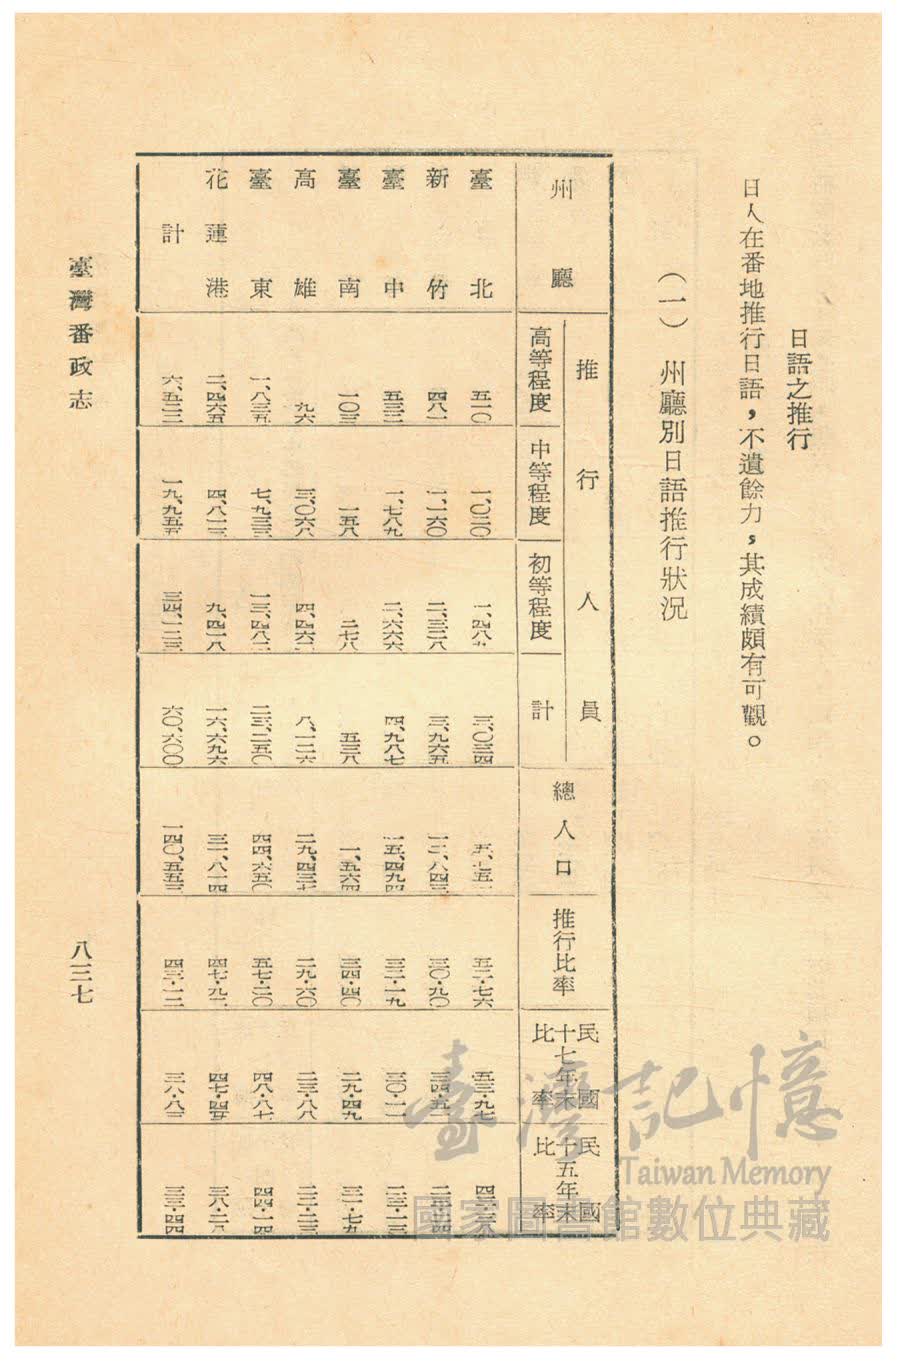 日語之推行
日人在番地推行日語，不遺餘力，其成績頗有可觀。
（一）　州廳別日語推行狀況
州廳　推行人員　高等程度　中等程度　初等程度　計　總人口　推行比率　民國十七年末比率　民國十五年末比率
臺北　五一〇　三、〇三四　五、七五一　五二・七六　五三・九七
新竹　四八一　一、一六〇　二、三二八　三、九六五　一二、八四三　三〇・九〇　三四・五二
臺中　五三二　一、七八九　二、六六六　四、九八七　一五、四九四　三二・一九　三〇・一一　二三・一三
臺南　一〇三　一五八　二七八　五三八　一、五六四　三四・四〇　二九・四九　三一・七九
高雄　九六　三、〇六八　四、四六二　八、一二六　二九、四三七　二九・六〇　二三・八八　二三・二三
臺東　一、八三五　七、九三三　一三、四八二　二三、二五〇　四四、六五〇　五七・二〇　四八・八七　四四・一四
花蓮港　二、四六五　四、八一三　九、四一八　一六、六九六　三一、八一四　四七・九二　四七・四五　三八・二八
計　六、五二二　一九、九五五　三四、一二三　六〇、六〇〇　一四〇、五五三　四三・一二　三八・八三　三三・四四
臺灣番政志
八三七
臺灣記憶
Taiwan Memory
國家圖書館數位典藏